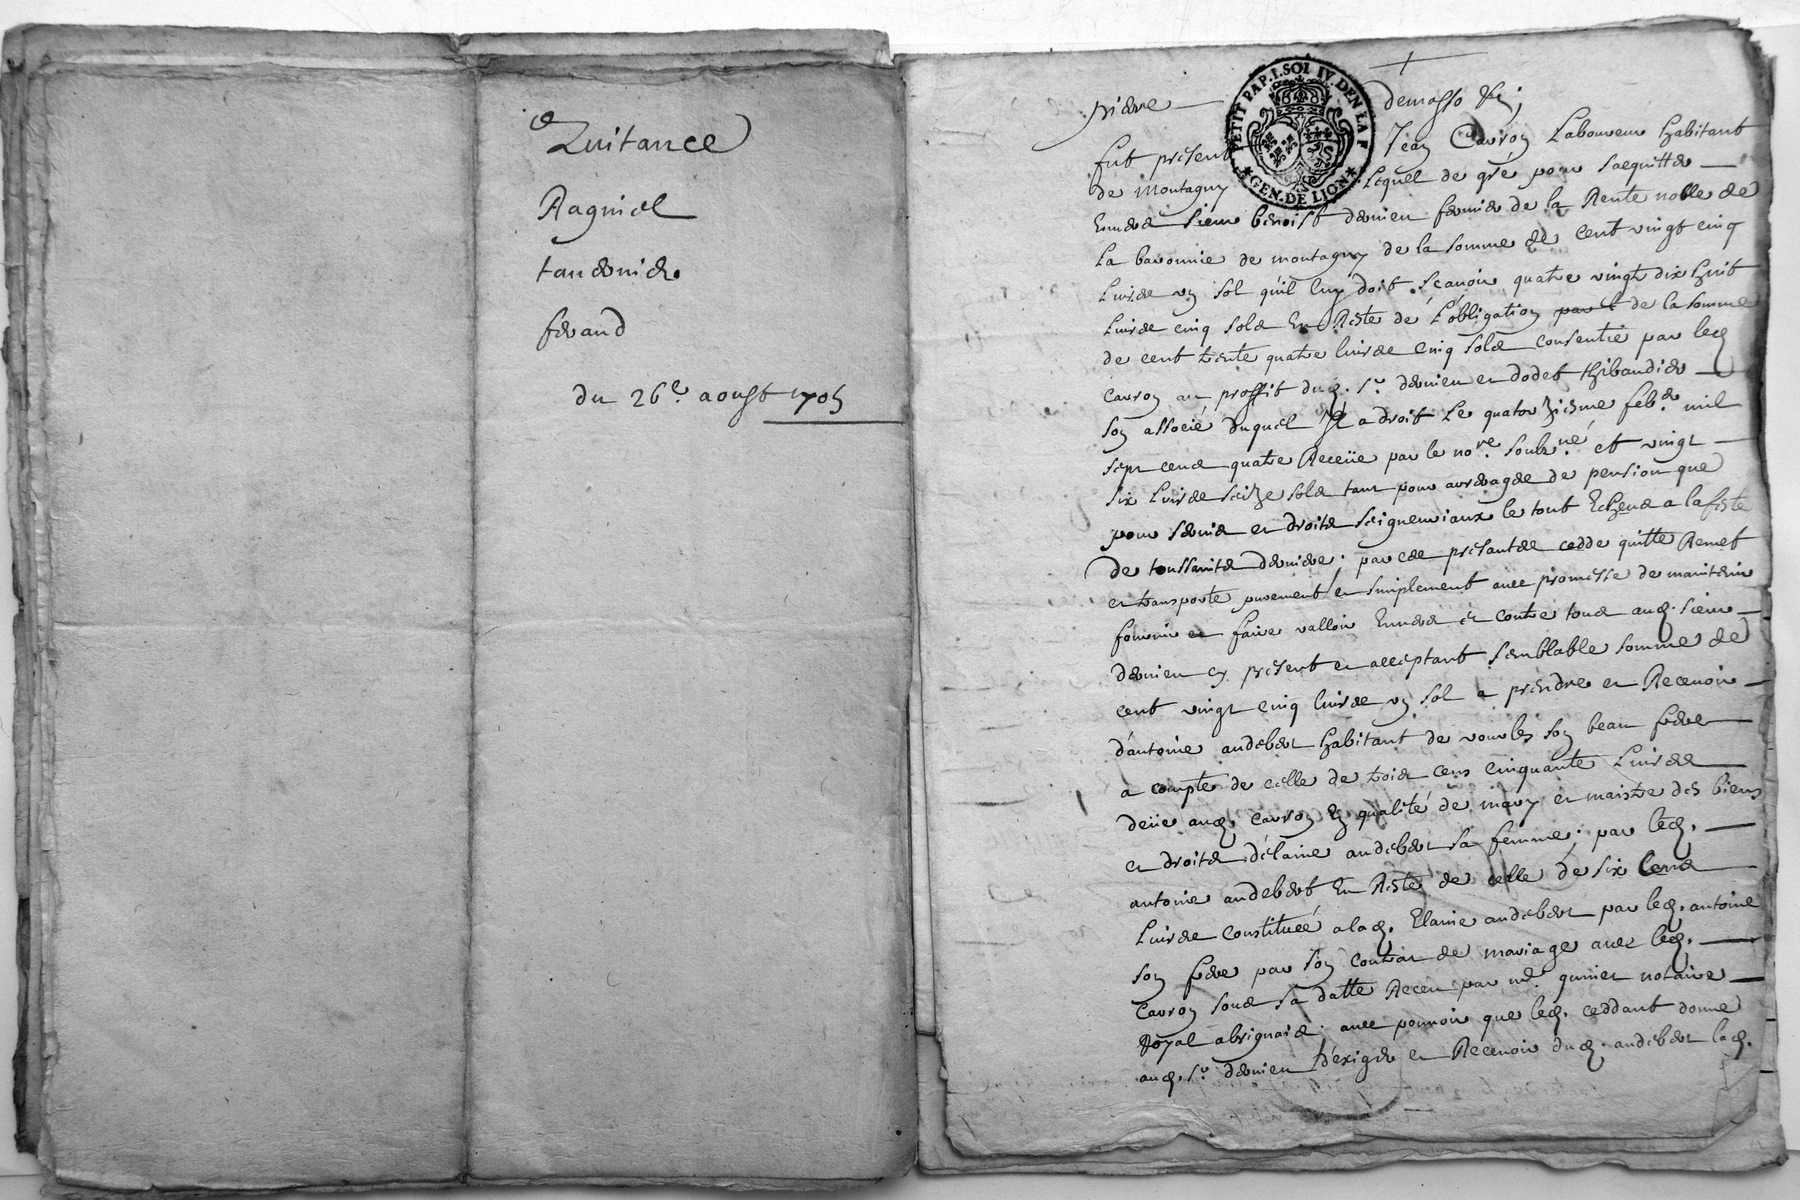 Quitance
Ragniel
tauernier
ferand
du 26e aoust 1705
PETIT PAP. 1. SOL IV. DEN. LA F
★ GEN. DE LION ★
fut present Jean Cauroy Laboureur habitant
de montagny Lequel de gré pour sacquitter
Enuers sieur benoist dernieu fermier de la Rente noble de
La baronnie de montagny de la somme de cent vingt cinq
Liures un sol qu'il luy doit, scauoir quatre vingt dix huit
Liures cinq sols En Reste de L'obligation par l de la somme
de cent trente quatre liures cinq sols consentie par led
Cauroy au proffit dud. Sr dernieu et dodet thibaudier
son associé duquel Il a droit Le quatorziesme febr. mil
sept cens quatre Receüe par le nore soubzné et vingt
six Liures seize sols tant pour arrerages de pension que
pour seruis et droits seigneuriaux le tout Echeus a la feste
de toussaints derniere; par ces presantes cedde quitte Remet
et transporte purement et simplement auec promesse de maintenir
fournir et faire valloir Enuers et contre tous aud. sieur
dernieu cy present et acceptant semblable somme de
cent vingt cinq liures un sol a prendre et Receuoir
d'antoine audebert habitant de vourles son beau frere
a compte de celle de trois cens cinquante Liures
deüe aud. Cauroy En qualité de mary et maistre des biens
et droits d'elaine audebert sa femme; par led.
antoine audebert En Reste de celle de six Cens
Liures constituée a lad. Elaine audebert par led. antoine
son frere par son contrat de mariage auec led.
Cauroy sous sa datte Receu par me. notaire
Royal a brignais; auec pouuoir que led. ceddant donne
aud. Sr dernieu d'exiger et Receuoir dud. audebert lad.